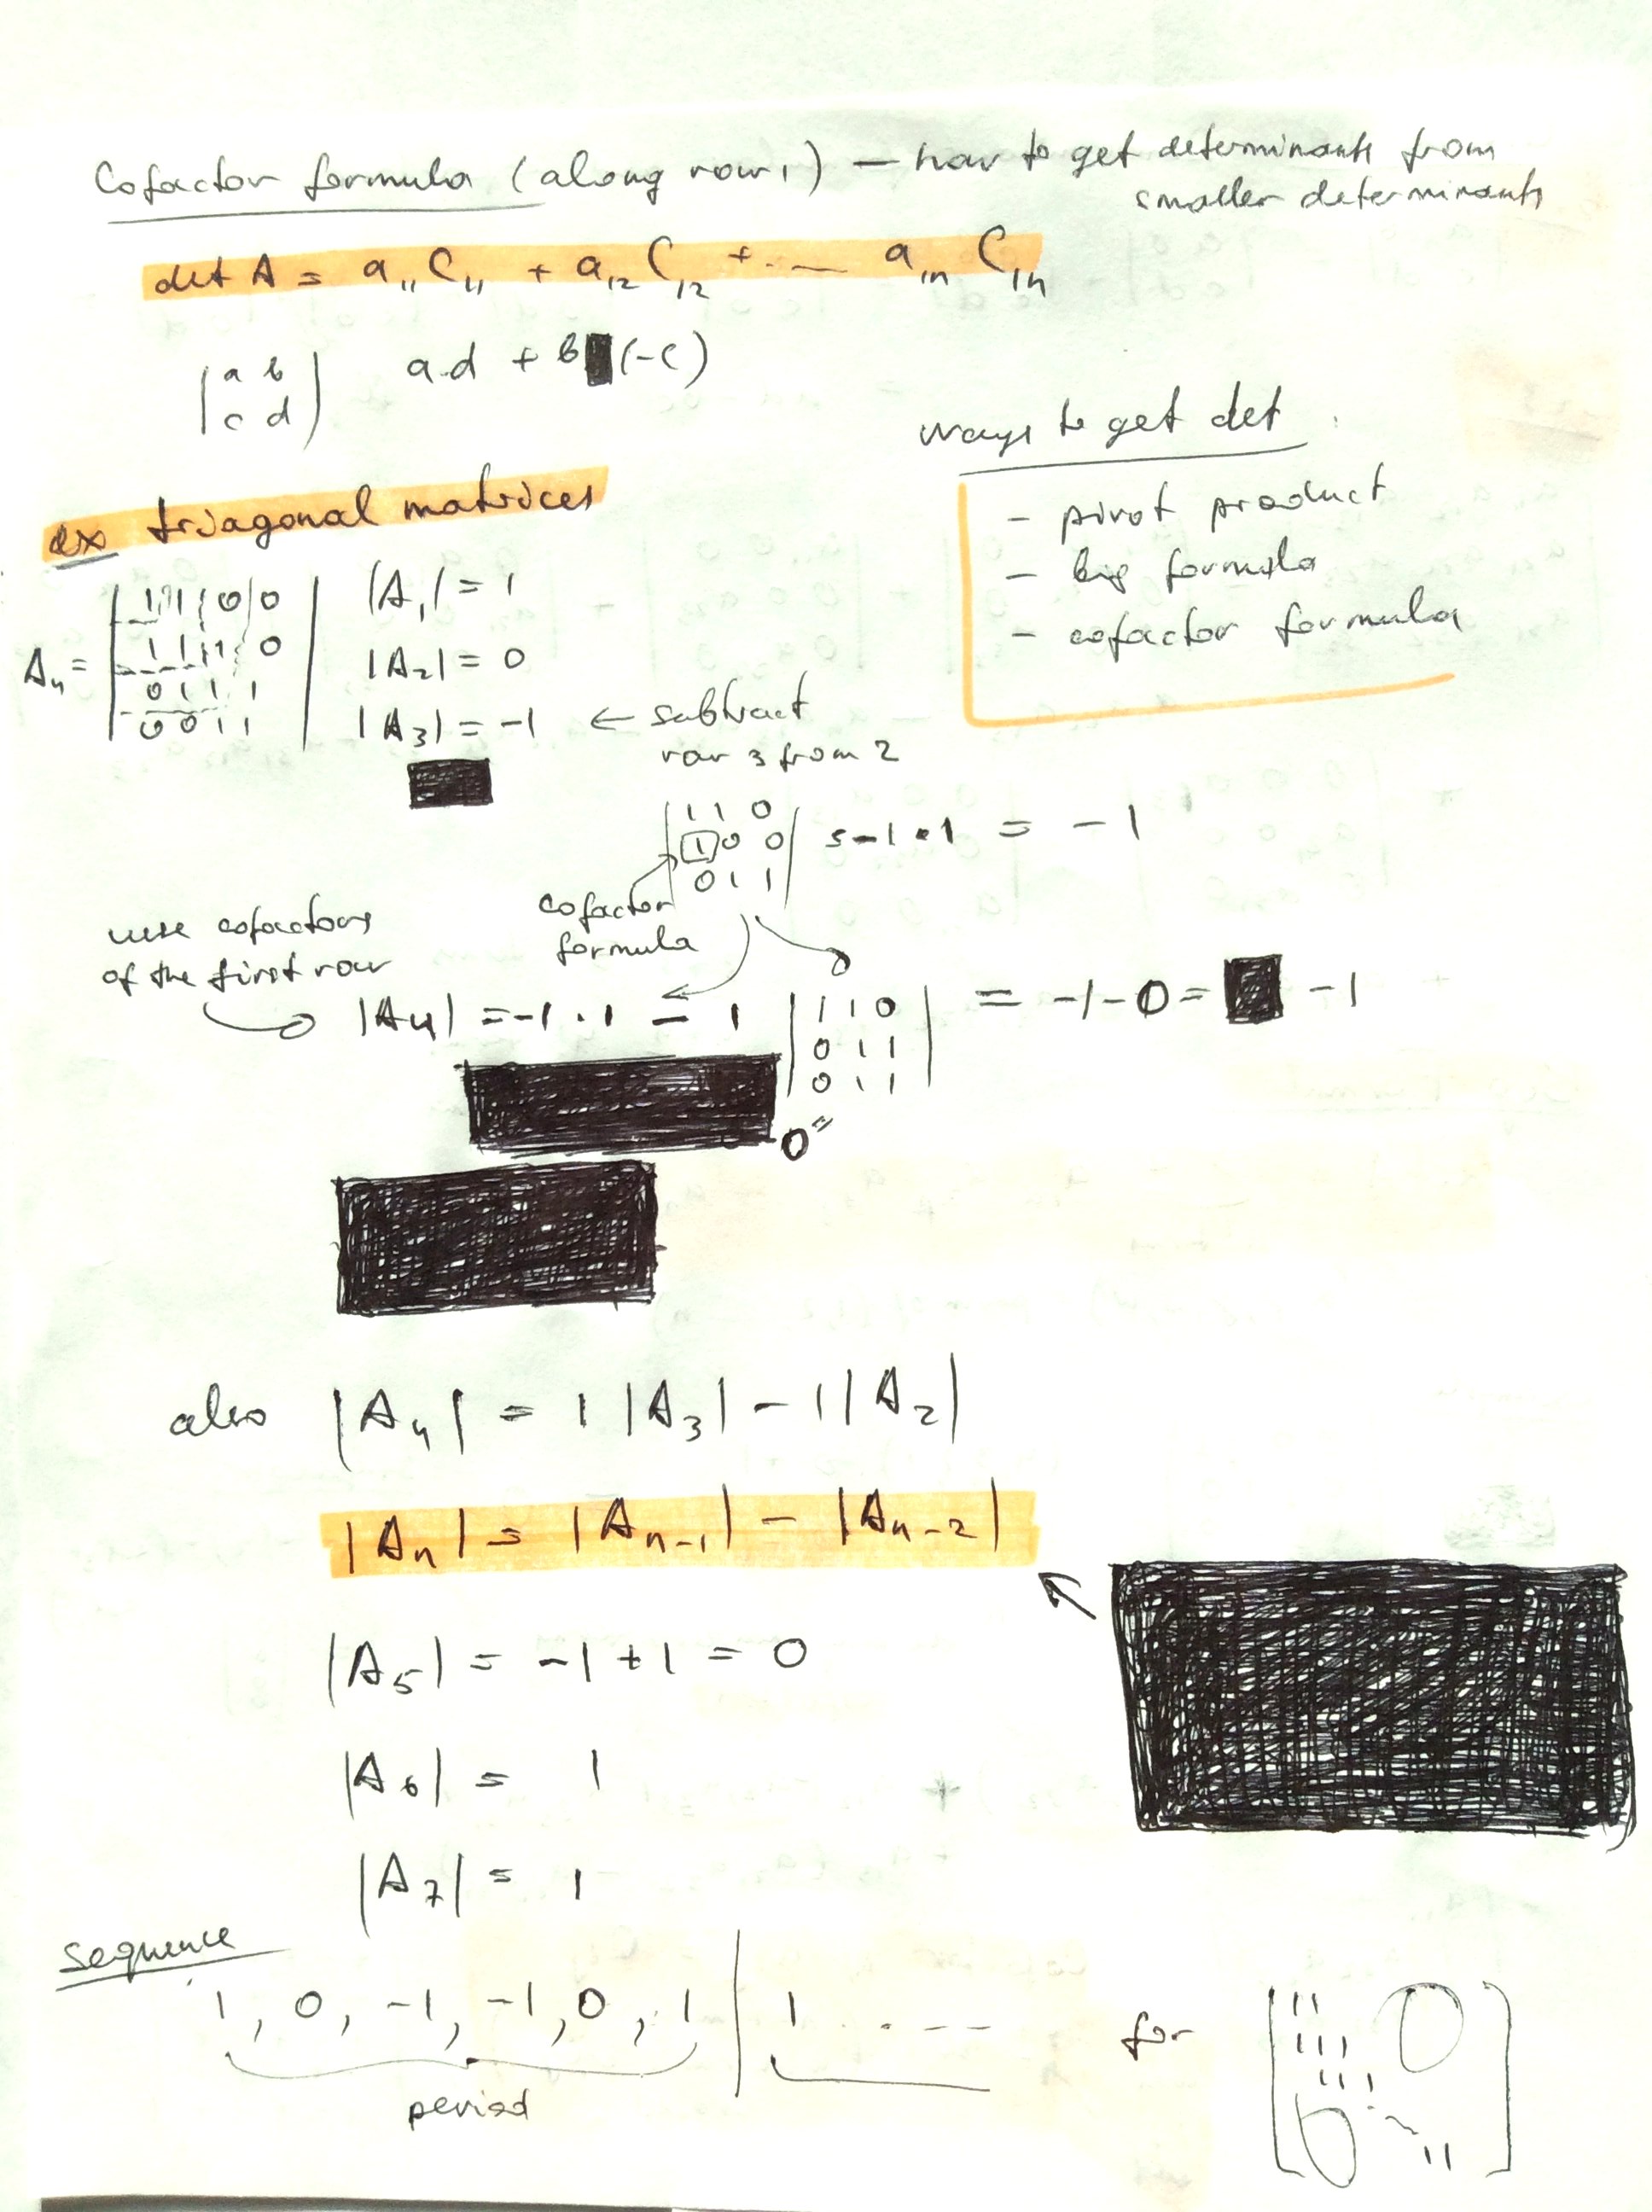 Cofactor formula (along row 1) — how to get determinants from
smaller determinants
det A = a₁₁ C₁₁ + a₁₂ C₁₂ + ... a₁ₙ C₁ₙ
|a b|
|c d|
a.d + b (-c)
ways to get det
- pivot product
- big formula
- cofactor formula
ex triagonal matrices
A₄ =
1 1 0 0
1 1 1 0
0 1 1 1
0 0 1 1
|A₁| = 1
|A₂| = 0
|A₃| = -1 ← subtract
row 3 from 2
1 1 0
1 0 0 = -1 · 1 = -1
0 1 1
cofactor
formula
use cofactors
of the first row
|A₄| = -1 · 1 - 1
1 1 0
0 1 1
0 1 1
= -1 - 0 = -1
0 =
also |A₄| = 1 |A₃| - 1 |A₂|
|Aₙ| = |Aₙ₋₁| - |Aₙ₋₂|
|A₅| = -1 + 1 = 0
|A₆| = 1
|A₇| = 1
sequence
1, 0, -1, -1, 0, 1 | 1 . . - -
period
for
1 1 0
1 1 1
1 1 1
0 1 1